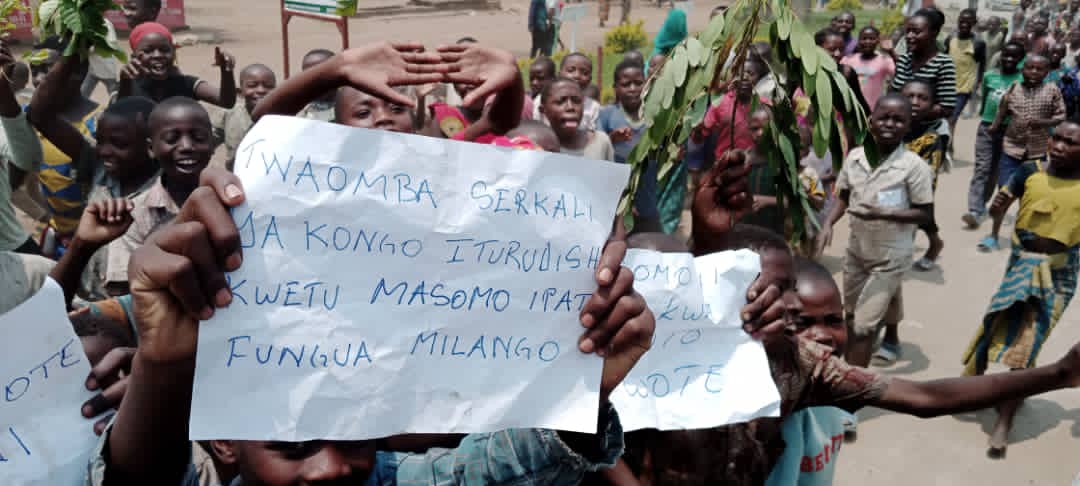 TWAOMBA SERKALI
YA KONGO ITURUDISH
KWETU MASOMO IPAT
FUNGUA MILANGO
OMOJI
KWA
WOTE
OTE